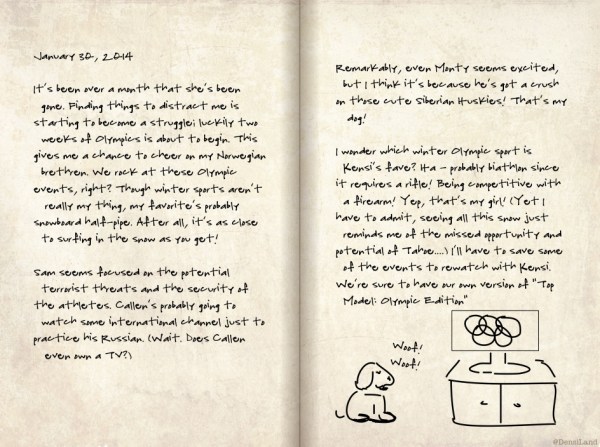 January 30, 2014
It's been over a month that she's been
gone. Finding things to distract me is
starting to become a struggle; luckily two
weeks of Olympics is about to begin. This
gives me a chance to cheer on my Norwegian
brethren. We rock at these Olympic
events, right? Though winter sports aren't
really my thing, my favorite's probably
snowboard half-pipe. After all, it's as close
to surfing in the snow as you get!
Sam seems focused on the potential
terrorist threats and the security of
the athletes. Callen's probably going to
watch some international channel just to
practice his Russian. (Wait. Does Callen
even own a TV?)
Remarkably, even Monty seems excited,
but I think it's because he's got a crush
on those cute Siberian Huskies! That's my
dog!
I wonder which winter Olympic sport is
Kensi's fave? Ha - probably biathlon since
it requires a rifle! Being competitive with
a firearm! Yep, that's my girl! (Yet I
have to admit, seeing all this snow just
reminds me of the missed opportunity and
potential of Tahoe....) I'll have to save some
of the events to rewatch with Kensi.
We're sure to have our own version of "Top
Model: Olympic Edition"
Woof!
Woof!
@DensiLand